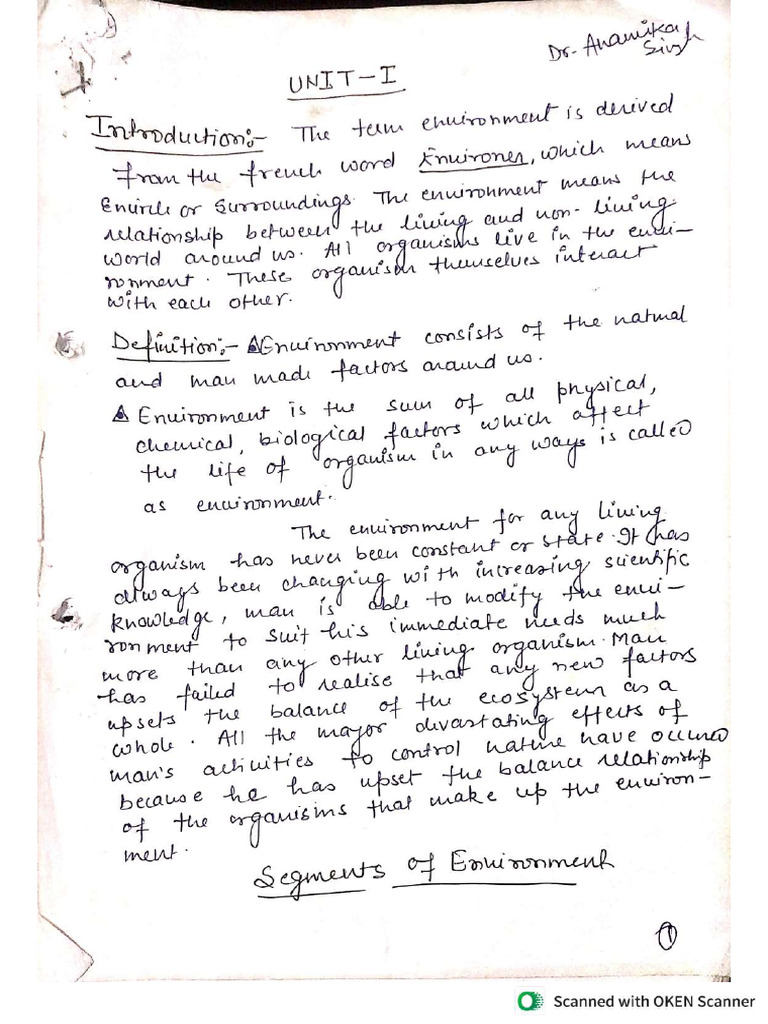 Dr. Anamika
Singh
UNIT-I
Introduction:- The term environment is derived
from the french word Environer, which means
Encircle or Surroundings. The environment means the
relationship between the living and non-living
world around us. All organisms live in the envi-
ronment. These organism themselves interact
with each other.
Definition:- Environment consists of the natural
and man made factors around us.
Environment is the sum of all physical,
chemical, biological factors which affect
the life of organism in any ways is called
as environment.
The environment for any living
organism has never been constant or state. It has
always been changing with increasing scientific
knowledge, man is able to modify the envi-
ronment to suit his immediate needs much
more than any other living organism. Man
has failed to realise that any new factors
upsets the balance of the ecosystem as a
whole. All the major devastating effects of
man's activities to control nature have occured
because he has upset the balance relationship
of the organisms that make up the environ-
ment.
Segments of Environment
1
Scanned with OKEN Scanner